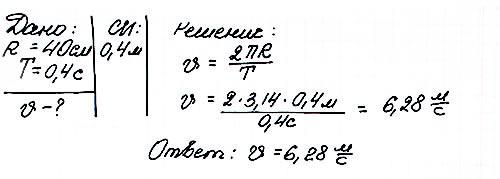 Дано:
R = 40см
T = 0,4с
υ - ?
СИ:
0,4м
Решение:
υ = 2πR / T
υ = 2·3,14·0,4м / 0,4с = 6,28 м/с
Ответ: υ = 6,28 м/с